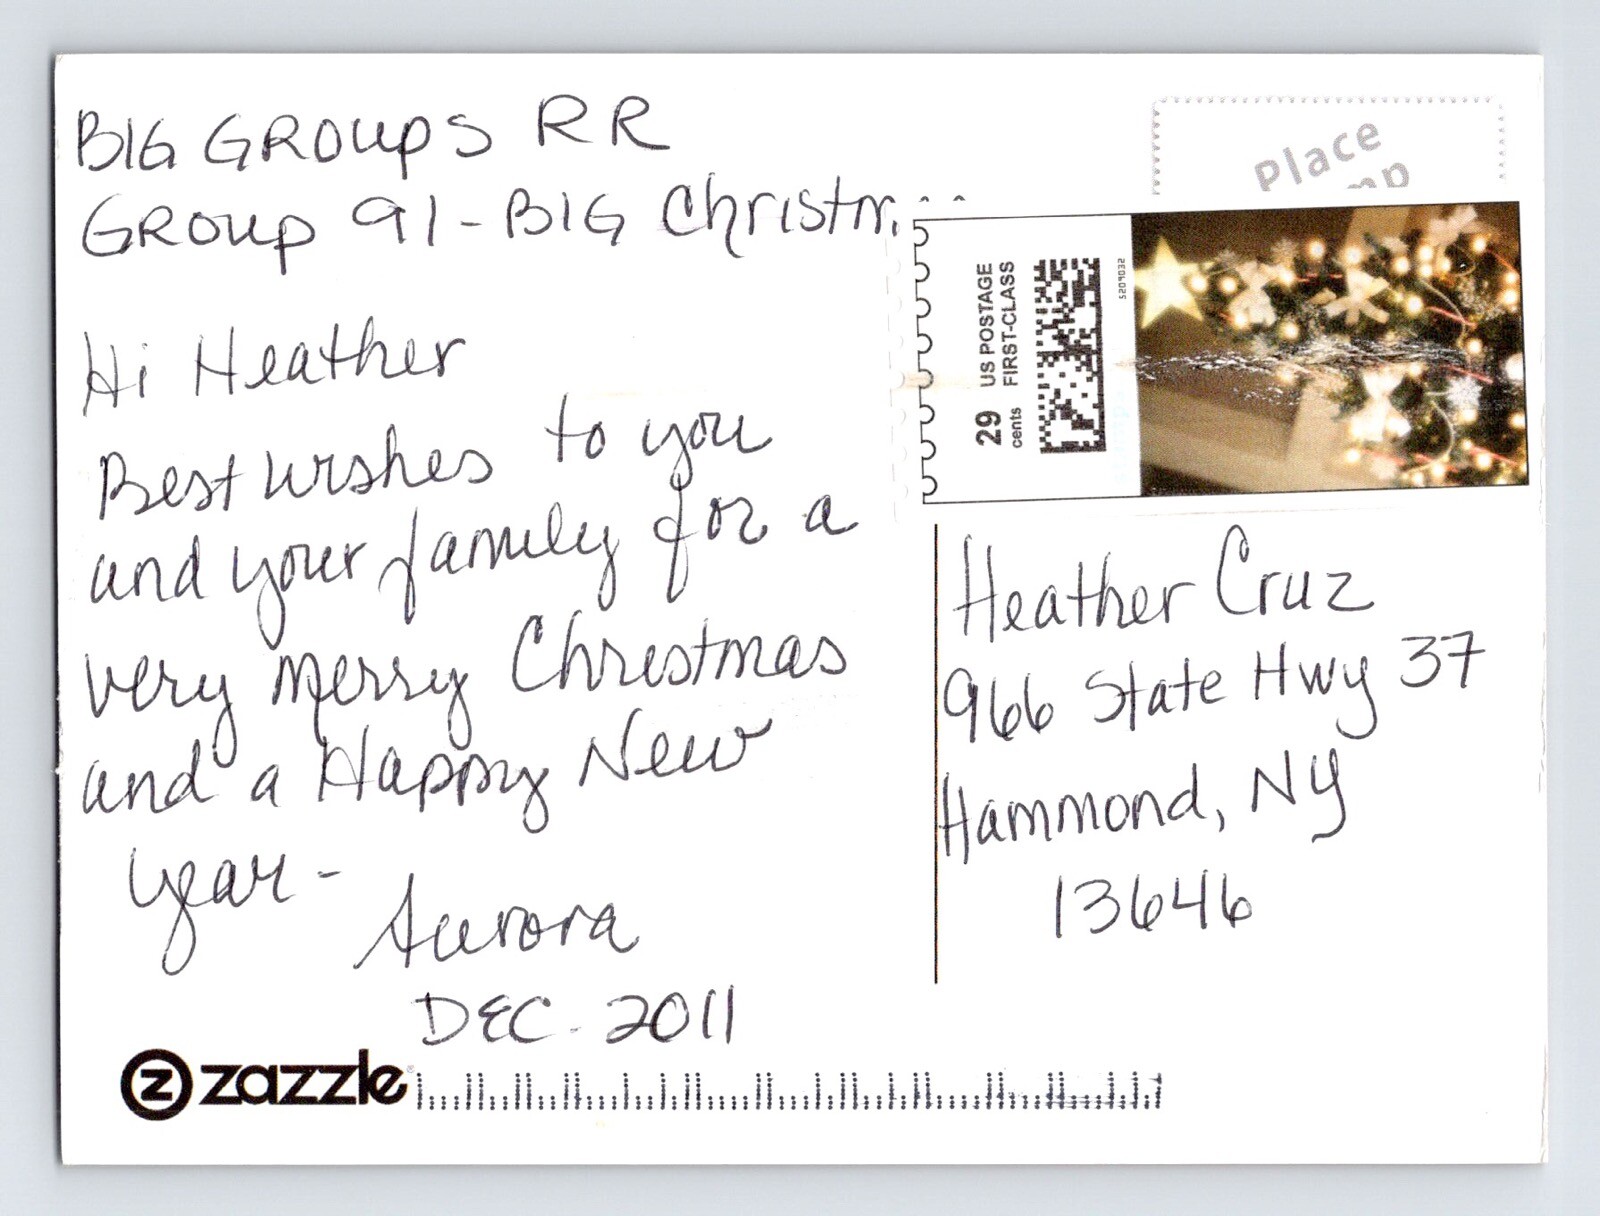 BIG GROUPS RR
GROUP 91 - BIG
Hi Heather
Best wishes to you
and your family for a
very merry Christmas
and a Happy New
year -
Aurora
DEC. 2011
zazzle
Place
29 cents
US POSTAGE
FIRST-CLASS
Heather Cruz
966 State Hwy 37
Hammond, NY
13646